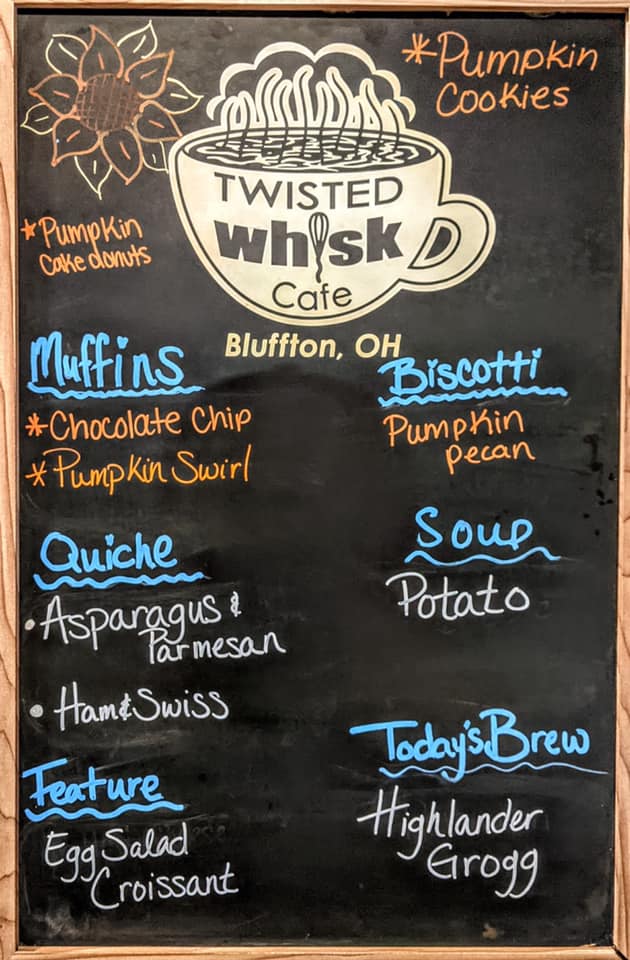 *Pumpkin
Cookies
TWISTED
whisk
Cafe
Bluffton, OH
*Pumpkin
Cake donuts
Muffins
*Chocolate Chip
*Pumpkin Swirl
Biscotti
Pumpkin
pecan
Quiche
•Asparagus &
Parmesan
• Ham & Swiss
Soup
Potato
Feature
Egg Salad
Croissant
Today's Brew
Highlander
Grogg